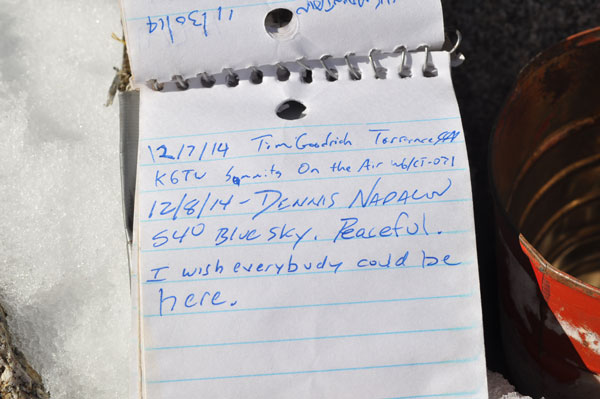 11/30/14
12/7/14 Tim Goodrich Torrance, CA
K6TU Summits On the Air W6/CT-071
12/8/14 - DENNIS
54° BLUE SKY. Peaceful.
I wish everybudy could be
here.